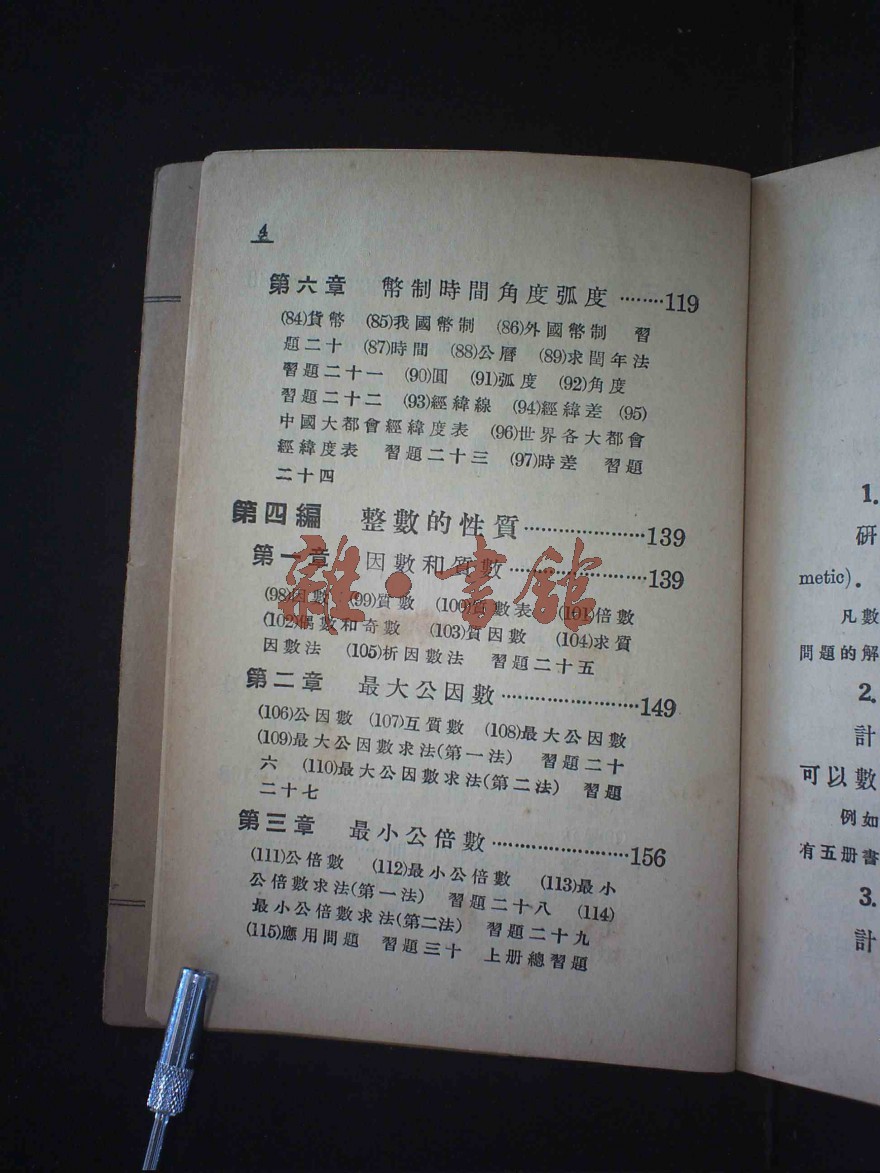 4
第六章 幣制時間角度弧度 ········119
(84)貨幣 (85)我國幣制 (86)外國幣制 習
題二十 (87)時間 (88)公曆 (89)求閏年法
習題二十一 (90)圓 (91)弧度 (92)角度
習題二十二 (93)經緯線 (94)經緯差 (95)
中國大都會經緯度表 (96)世界各大都會
經緯度表 習題二十三 (97)時差 習題
二十四
第四編 整數的性質······················139
第一章 因數和質數·························139
(98)因數 (99)質數 (100)質數表 (101)倍數
(102)偶數和奇數 (103)質因數 (104)求質
因數法 (105)析因數法 習題二十五
第二章 最大公因數·························149
(106)公因數 (107)互質數 (108)最大公因數
(109)最大公因數求法(第一法) 習題二十
六 (110)最大公因數求法(第二法) 習題
二十七
第三章 最小公倍數·························156
(111)公倍數 (112)最小公倍數 (113)最小
公倍數求法(第一法) 習題二十八 (114)
最小公倍數求法(第二法) 習題二十九
(115)應用問題 習題三十 上册總習題
雜·書館
1.
研
metic).
凡數
問題的解
2.
計
可以數
例如
有五册書
3.
計